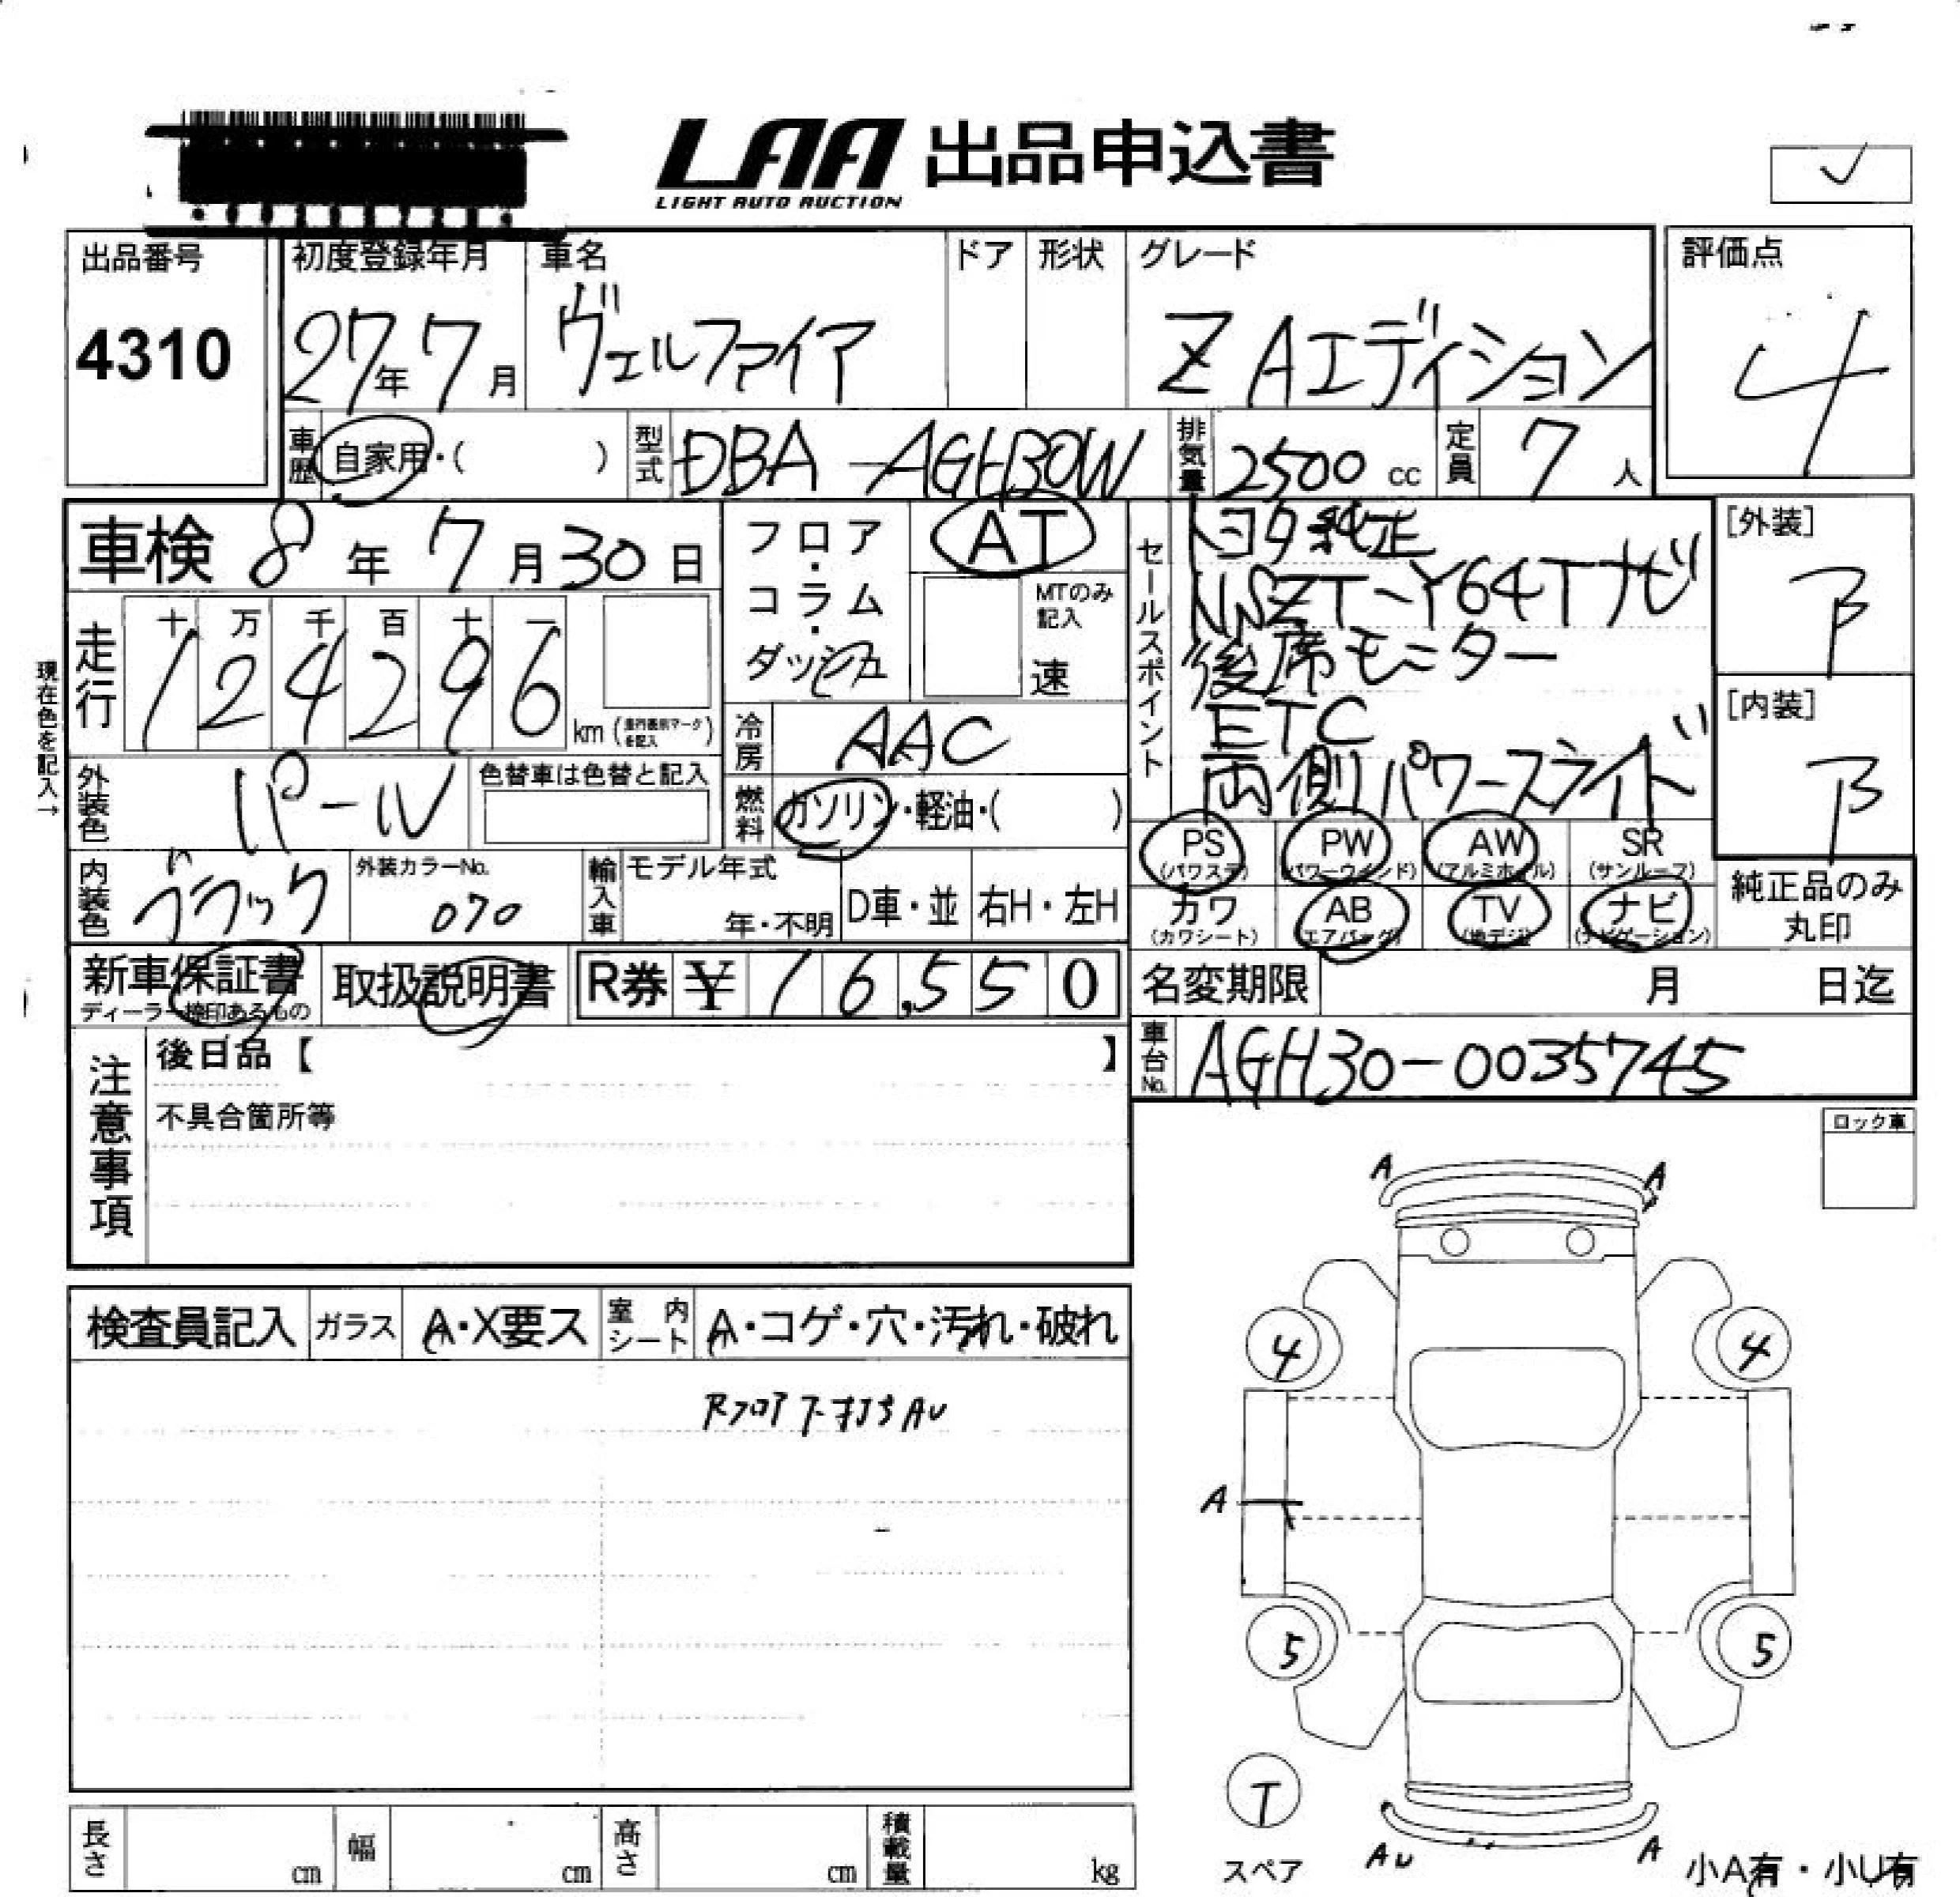 LAA 出品申込書
LIGHT AUTO AUCTION
出品番号 初度登録年月 車名 ドア 形状 グレード 評価点
4310 27年7月 ヴェルファイア Z Aエディション 4
車歴 自家用・( ) 型式 DBA-AGH30W 排気量 2500 cc 定員 7 人
車検 8年7月30日
フロア・コラム・ダッシュ AT
MTのみ記入 速
セールスポイント
トヨタ純正
NSZT-Y64Tナビ
後席モニター
ETC
両側パワースライド
[外装] B
[内装] B
現在色を記入→
走行 十 万 千 百 十 一
124296 km (走行義務マーク
冷房 AAC
外装色 パール 色替車は色替と記入
燃料 ガソリン・軽油・( )
PS (パワステ) PW (パワーウインド) AW (アルミホイル) SR (サンルーフ)
カワ (カワシート) AB (エアバッグ) TV (地デジ) ナビ (ナビゲーション)
純正品のみ
丸印
内装色 ブラック 外装カラーNo. 070 輸入車 モデル年式 年・不明 D車・並 右H・左H
新車保証書 取扱説明書 R券 ¥ 16,550
ディーラー捺印あるもの
名変期限 月 日迄
車台No. AGH30-0035745
注意事項
後日品【 】
不具合箇所等
ロック車
検査員記入 ガラス A・X要ス 室内シート A・コゲ・穴・汚れ・破れ
Rフロア下打ちAU
A A
4 4
A
5 5
T
スペア
AU A
小A有・小U有
長さ cm 幅 cm 高さ cm 積載量 kg